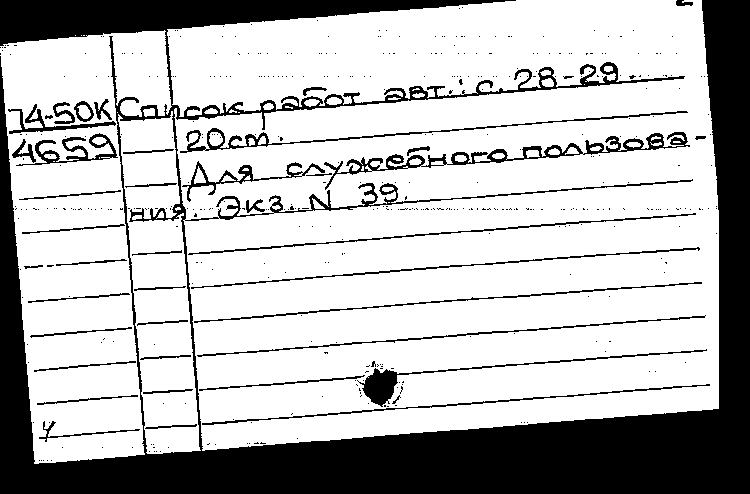 74-50К Список работ авт.: с. 28-29.
4659 20см.
Для служебного пользова-
ния. Экз. N 39.